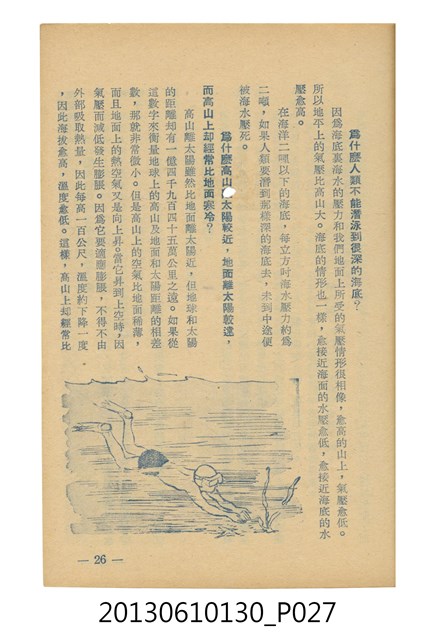 為什麼人類不能潛泳到很深的海底？
因為海底裏海水的壓力和我們地面上所受的氣壓情形很相像，愈高的山上，氣壓愈低。
所以地平上的氣壓比高山大。海底的情形也一樣，愈接近海面的水壓愈低，愈接近海底的水
壓愈高。
在海洋二哩以下的海底，每立方吋海水壓力約為
二噸，如果人類要潛到那樣深的海底去，未到中途便
被海水壓死。
為什麼高山　太陽較近，地面離太陽較遠，
而高山上却經常比地面寒冷？
高山離太陽雖然比地面離太陽近，但地球和太陽
的距離却有一億四千九百四十五萬公里之遠。如果從
這數字來衡量地球上的高山及地面和太陽距離的相差
數，那就非常微小。但是高山上的空氣比地面稀薄，
而且地面上的熱空氣又是向上昇。當它昇到上空時，因
氣壓而減低發生膨脹。因為它要適應膨脹，不得不由
外部吸取熱量，因此每高一百公尺，溫度約下降一度
，因此海拔愈高，溫度愈低。這樣，高山上却經常比
— 26 —
20130610130_P027